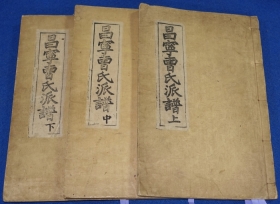 昌寧曺氏派譜 上
昌寧曺氏派譜 中
昌寧曺氏派譜 下